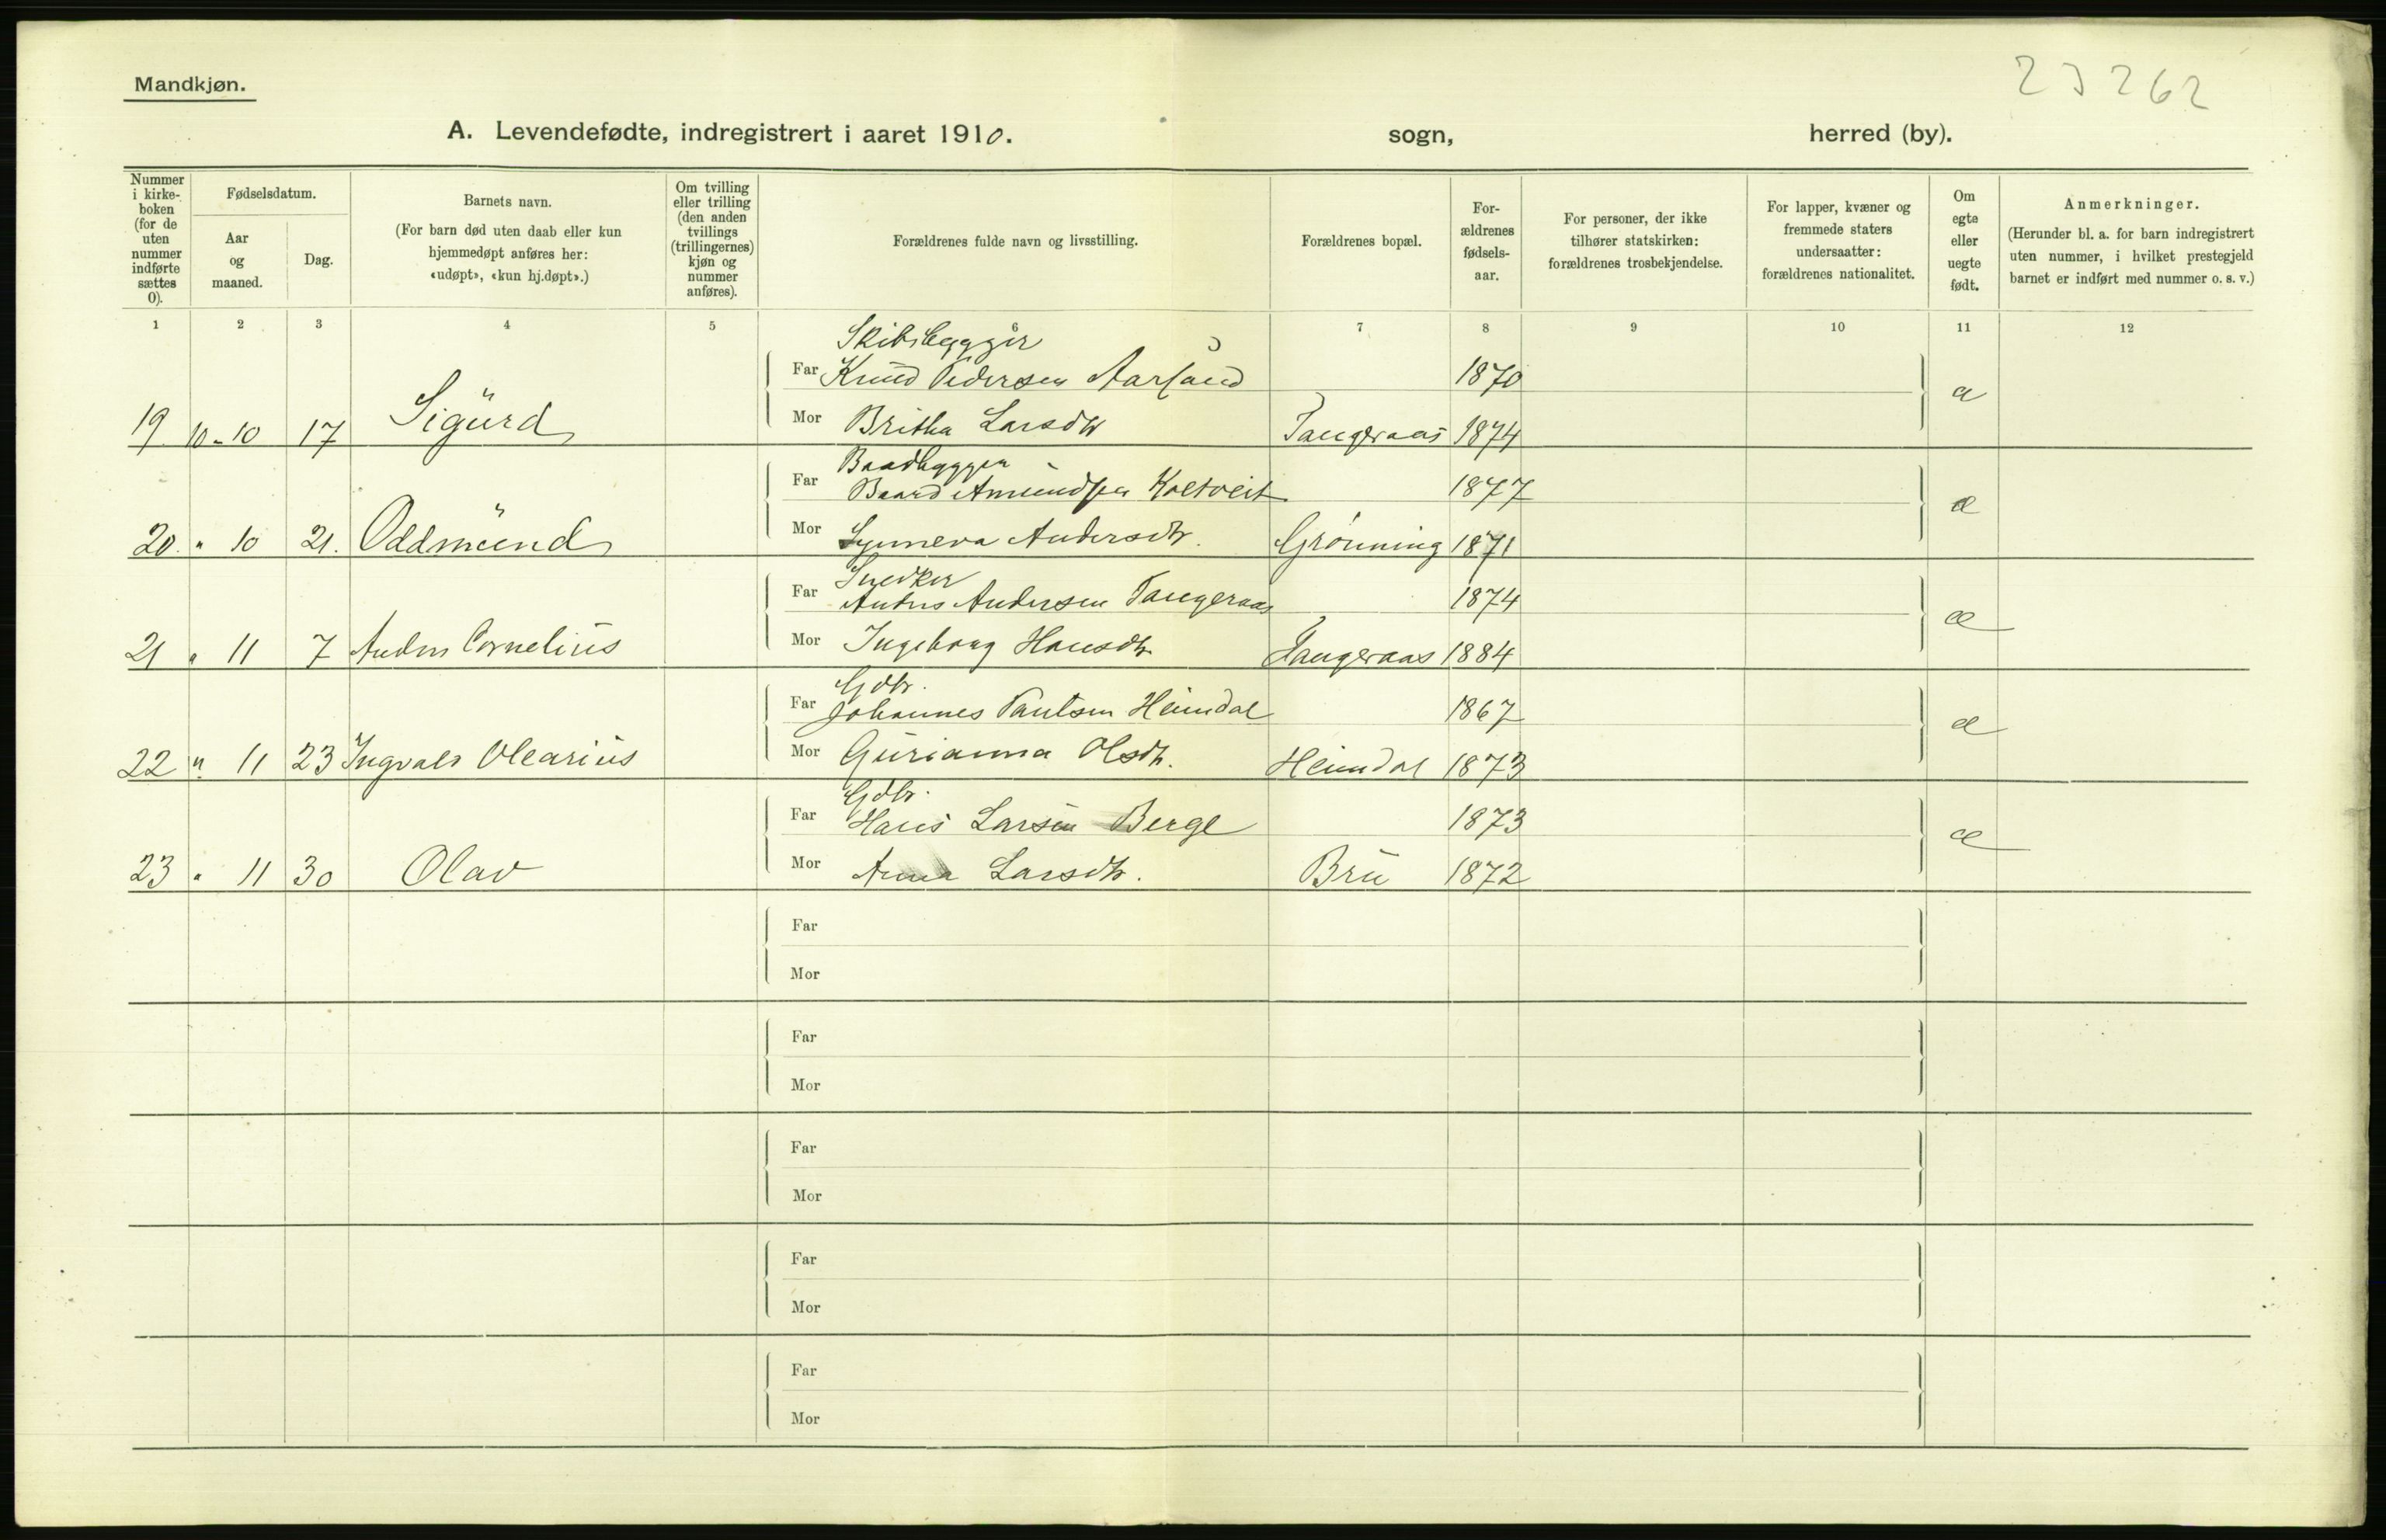 Mandkjøn.
23262
A. Levendefødte, indregistrert i aaret 1910. sogn, herred (by).
Nummer i kirke-boken (for de uten nummer indførte sættes 0).
Fødselsdatum.
Aar og maaned.
Dag.
Barnets navn.
(For barn død uten daab eller kun hjemmedøpt anføres her: «udøpt», «kun hj.døpt».)
Om tvilling eller trilling (den anden tvillings (trillingernes) kjøn og nummer anføres).
Forældrenes fulde navn og livsstilling.
Forældrenes bopæl.
For-ældrenes fødsels-aar.
For personer, der ikke tilhører statskirken: forældrenes trosbekjendelse.
For lapper, kvæner og fremmede staters undersaatter: forældrenes nationalitet.
Om egte eller uegte født.
Anmerkninger.
(Herunder bl. a. for barn indregistrert uten nummer, i hvilket prestegjeld barnet er indført med nummer o. s. v.)
1 2 3 4 5 6 7 8 9 10 11 12
Skibsbygger
Far Knud Pedersen Aarsand 1870
19 10-10 17 Sigurd Mor Britha Larsdtr Tangeraas 1874 æ
Baadbygger
Far Baard Amundsen Koltveit 1877
20. " 10 21. Oddmund Mor Synneva Andersdtr. Grønning 1871 æ
Snedker
Far Anders Andersen Tangeraas 1874
21 " 11 7 Anders Cornelius Mor Ingeborg Hansdtr Tangeraas 1884 æ
Gdbr.
Far Johannes Paulsen Heimdal 1867
22 " 11 23 Ingvald Olearius Mor Gurianna Olsdtr. Heimdal 1873 æ
Gdbr.
Far Hans Larsen Berge 1873
23 " 11 30 Olav Mor Anna Larsdtr. Bru 1872 æ
Far
Mor
Far
Mor
Far
Mor
Far
Mor
Far
Mor